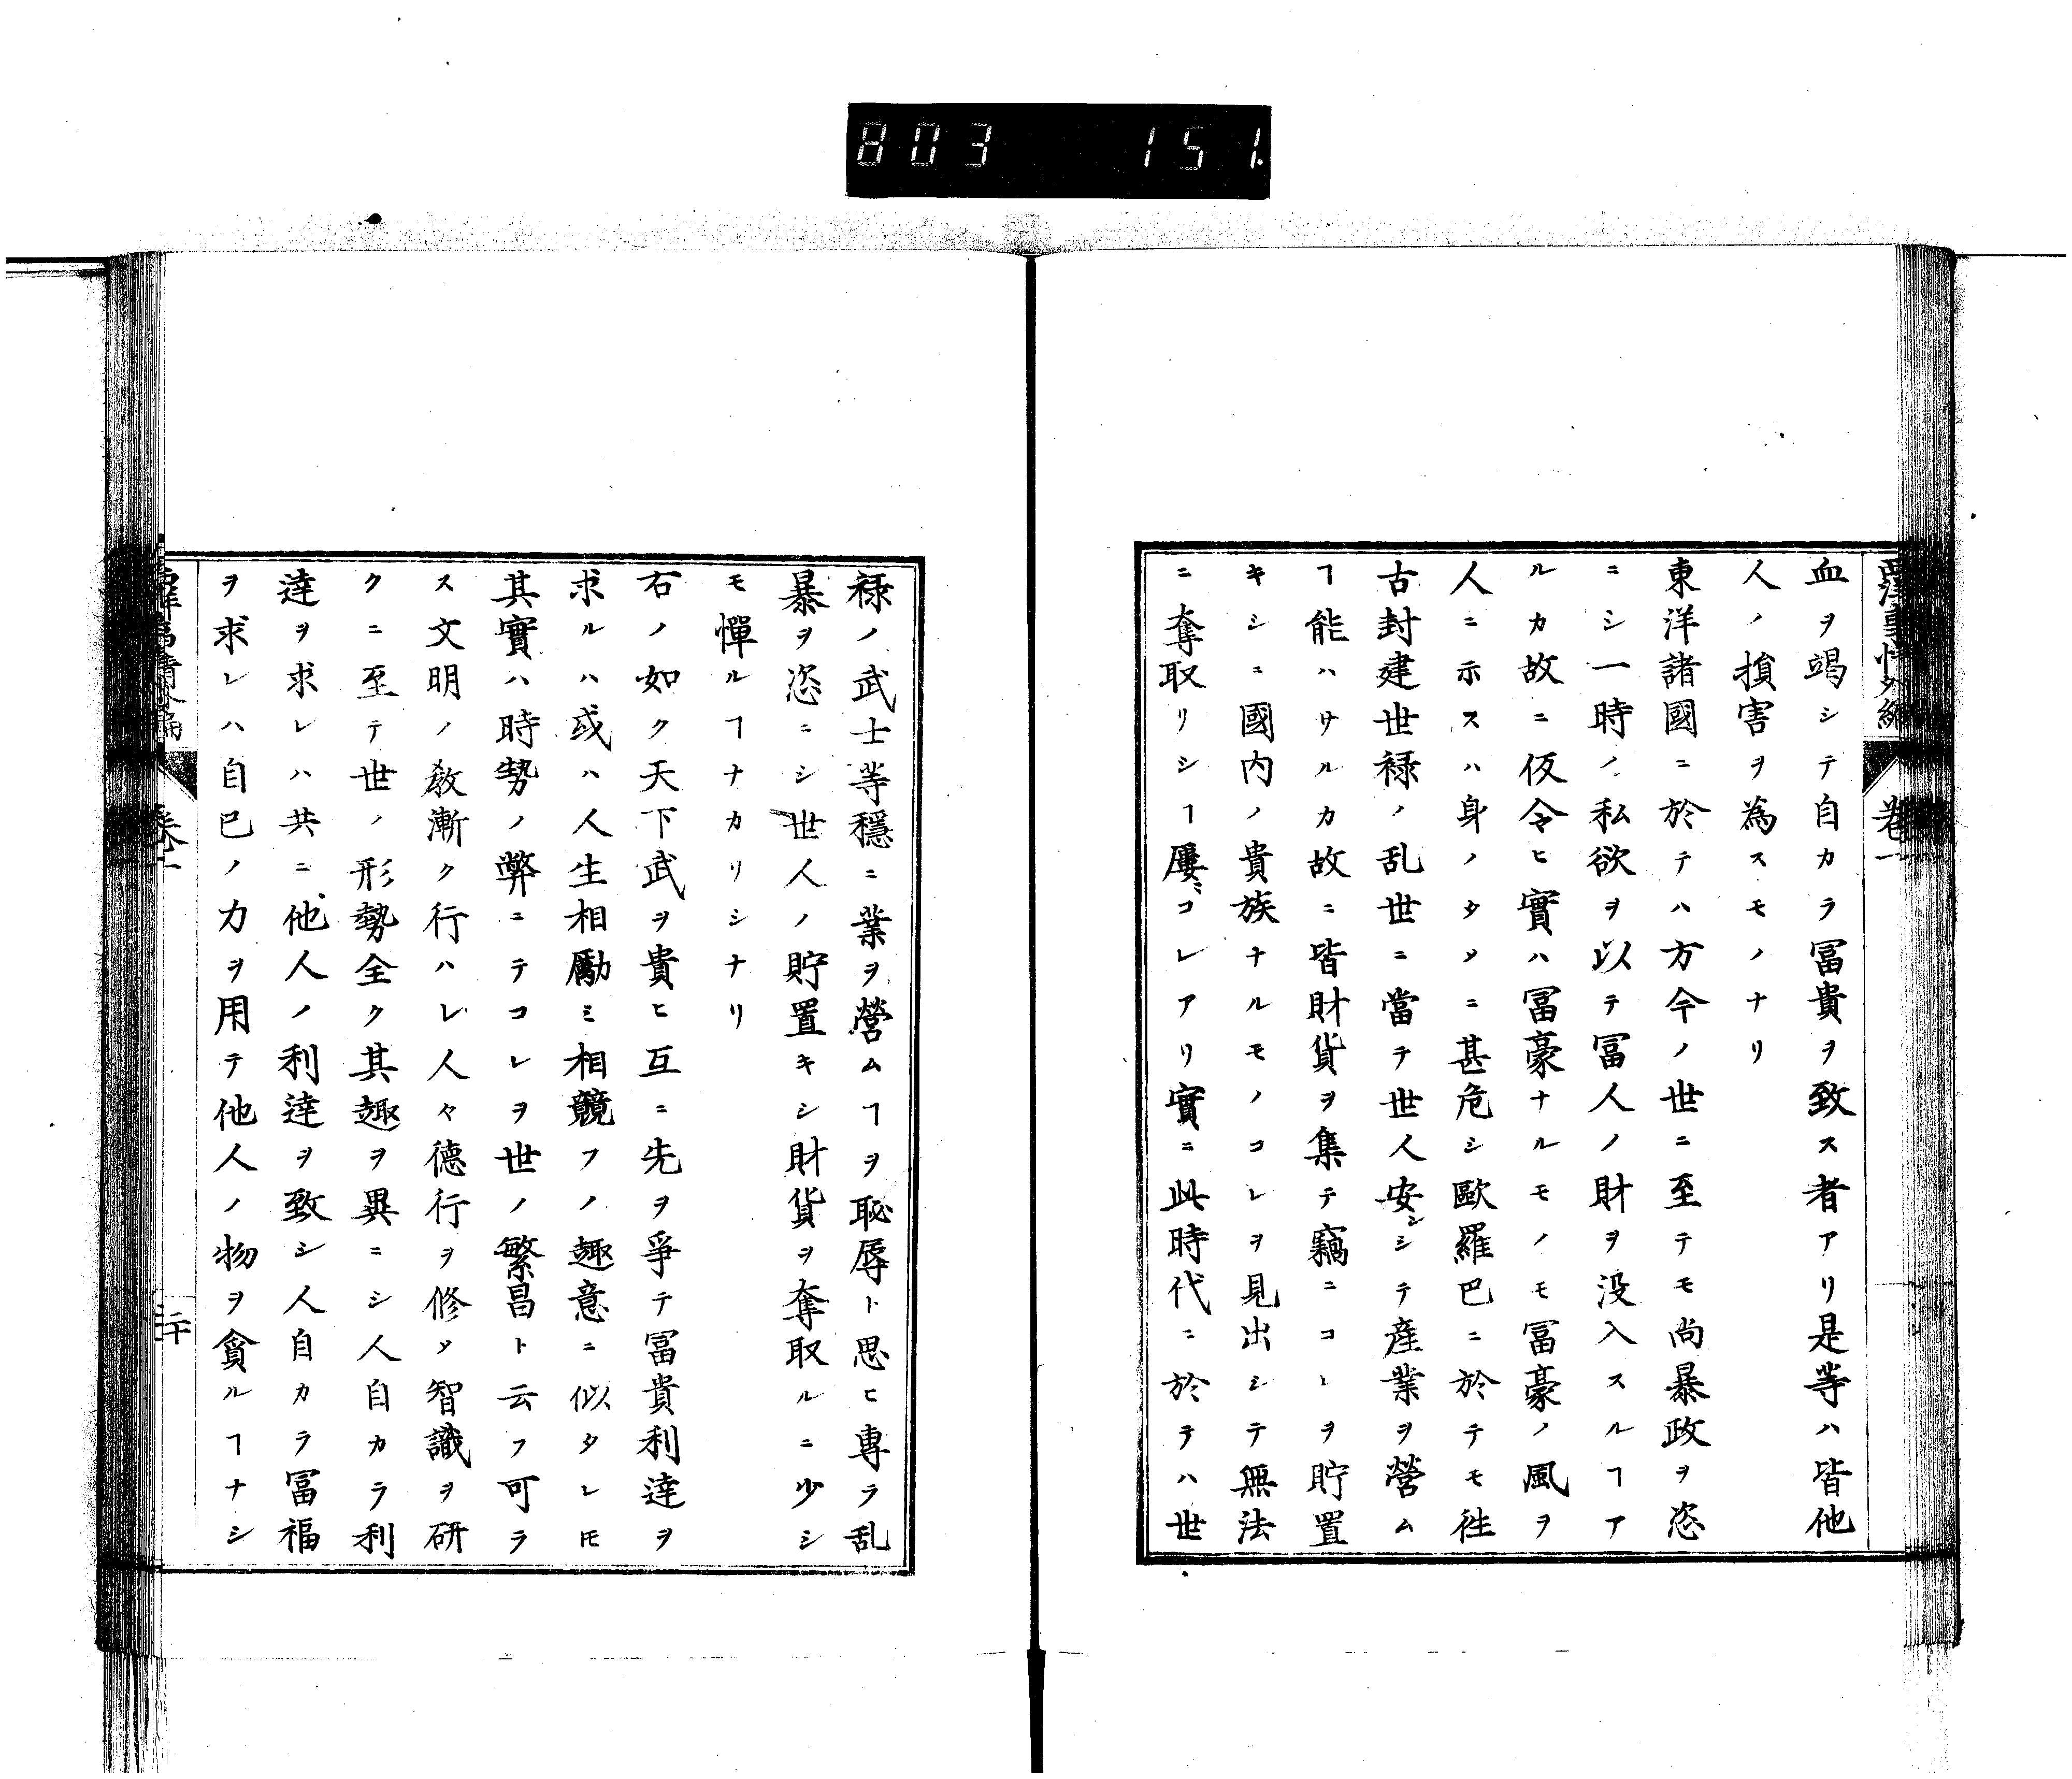 803 151.
西洋事情外編 卷一
血ヲ竭シテ自カラ冨貴ヲ致ス者アリ是等ハ皆他
人ノ損害ヲ為スモノナリ
東洋諸國ニ於テハ方今ノ世ニ至テモ尚暴政ヲ恣
ニシ一時ノ私欲ヲ以テ冨人ノ財ヲ没入スルヿア
ルカ故ニ仮令ヒ實ハ冨豪ナルモノモ冨豪ノ風ヲ
人ニ示スハ身ノタメニ甚危シ歐羅巴ニ於テモ徃
古封建世禄ノ乱世ニ當テ世人安シシテ産業ヲ營ム
ヿ能ハサルカ故ニ皆財貨ヲ集テ竊ニコレヲ貯置
キシニ國内ノ貴族ナルモノコレヲ見出シテ無法
ニ奪取リシヿ屢〻コレアリ實ニ此時代ニ於テハ世
禄ノ武士等穩ニ業ヲ營ムヿヲ恥辱ト思ヒ專ラ乱
暴ヲ恣ニシ世人ノ貯置キシ財貨ヲ奪取ルニ少シ
モ憚ルヿナカリシナリ
右ノ如ク天下武ヲ貴ヒ互ニ先ヲ爭テ冨貴利達ヲ
求ルハ或ハ人生相勵ミ相競フノ趣意ニ似タレ𪜈
其實ハ時勢ノ弊ニテコレヲ世ノ繁昌ト云フ可ラ
ス文明ノ敎漸ク行ハレ人々德行ヲ修メ智識ヲ研
クニ至テ世ノ形勢全ク其趣ヲ異ニシ人自カラ利
達ヲ求レハ共ニ他人ノ利達ヲ致シ人自カラ冨福
ヲ求レハ自己ノ力ヲ用テ他人ノ物ヲ貪ルヿナシ
西洋事情外編 卷一 二十